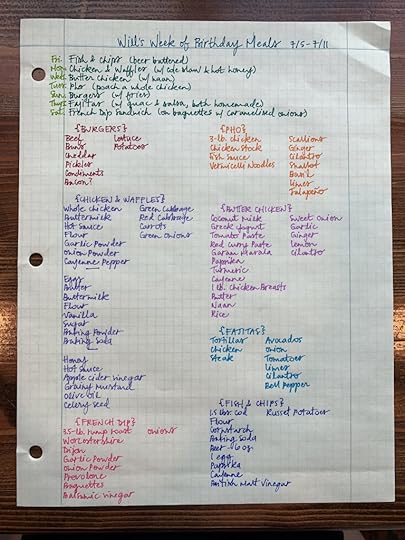 Will's Week of Birthday Meals 7/5-7/11
Fri. Fish & Chips (beer battered)
Mon. Chicken & Waffles (w/ cole slaw & hot honey)
Wed. Butter Chicken (w/ naan)
Tues. Pho (poach a whole chicken)
Sun. Burgers (w/ fries)
Thurs. Fajitas (w/ guac & salsa, both homemade)
Sat. French Dip Sandwich (on baguettes w/ caramelized onions)
{BURGERS}
Beef Lettuce
Buns Potatoes
Cheddar
Pickles
Condiments
Bacon?
{PHO}
3-lb. chicken Scallions
Chicken Stock Ginger
Fish Sauce Cilantro
Vermicelli Noodles Shallot
Basil
Limes
Jalapeño
{CHICKEN & WAFFLES}
Whole Chicken Green Cabbage
Buttermilk Red Cabbage
Hot Sauce Carrots
Flour Green Onions
Garlic Powder
Onion Powder
Cayenne Pepper
Eggs
Butter
Buttermilk
Flour
Vanilla
Sugar
Baking Powder
Baking Soda
Honey
Hot Sauce
Apple Cider Vinegar
Grainy Mustard
Olive Oil
Celery Seed
{BUTTER CHICKEN}
Coconut Milk Sweet Onion
Greek Yogurt Garlic
Tomato Paste Ginger
Red Curry Paste Lemon
Garam Masala Cilantro
Paprika
Turmeric
Cayenne
1 lb. Chicken Breasts
Butter
Naan
Rice
{FAJITAS}
Tortillas Avocados
Chicken Onion
Steak Tomatoes
Limes
Cilantro
Bell Pepper
{FRENCH DIP}
3.5-lb. rump roast onions
Worcestershire
Dijon
Garlic Powder
Onion Powder
Provolone
Baguettes
Balsamic Vinegar
{FISH & CHIPS}
1.5 lbs. Cod Russet Potatoes
Flour
Cornstarch
Baking Soda
Beer -16 oz.
1 egg
Paprika
Cayenne
British Malt Vinegar